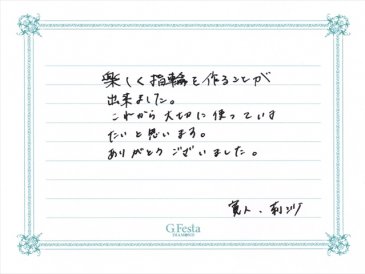 楽しく指輪を作ることが
出来ました。
これから大切に使っていき
たいと思います。
ありがとうございました。
寛人、
G.Festa